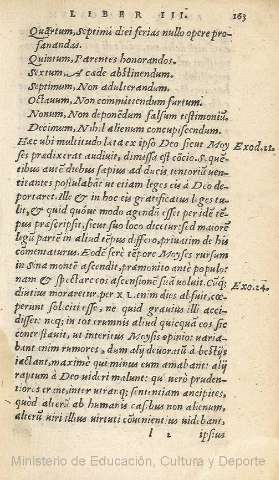 LIBER III. 163
Quartum, Septimi diei ferias nullo opere pro-
fanandas.
Quintum, Parentes honorandos.
Sextum, A cæde abstinendum.
Septimum, Non adulterandum.
Octauum, Non committendum furtum.
Nonum, Non deponēdum falsum testimoniū.
Decimum, Nihil alienum concupiscendum.
Hæc ubi multitudo lata ex ipso Deo sicut Moy
ses prædixerat audiuit, dimissa est cōcio. Sequē-
tibus autē diebus sæpius ad ducis tentoriū uen-
titantes postulabāt ut etiam leges eis à Deo de-
portaret. Ille & in hoc eis gratificatus leges tu-
lit, & quid quóue modo agendū esset per idē tē-
pus præscripsit, sicut suo loco dicetur: sed maiorē
legū partē in aliud tēpus differo, priuatim de his
cōmentaturus. Eodē ferè tēpore Moyses rursum
in Sina montē ascendit, præmonito ante populo:
nam & spectāte eos ascensionē suā uoluit. Cūq;
diutius moraretur, per XL. enim dies abfuit, cœ-
perunt soliciti esse, ne quid grauius illi acci-
disset: neq; in tot ærumnis aliud quicquā eos sic
conturbauit, ut interitus Moysis opinio: varia-
bant enim rumores, dum alij deuoratū à bestijs
iactant, maximè qui minus eum amabant: alij
raptum à Deo uideri malunt: qui uerò pruden-
tiores erant, inter utranq; sententiam ancipites,
quòd alterū ab humanis casibus non alienum,
alterū uiri illius uirtuti cōueniens uidebant,
l 2 ipsius
Exod. 21.
Exo. 24.
Ministerio de Educación, Cultura y Deporte